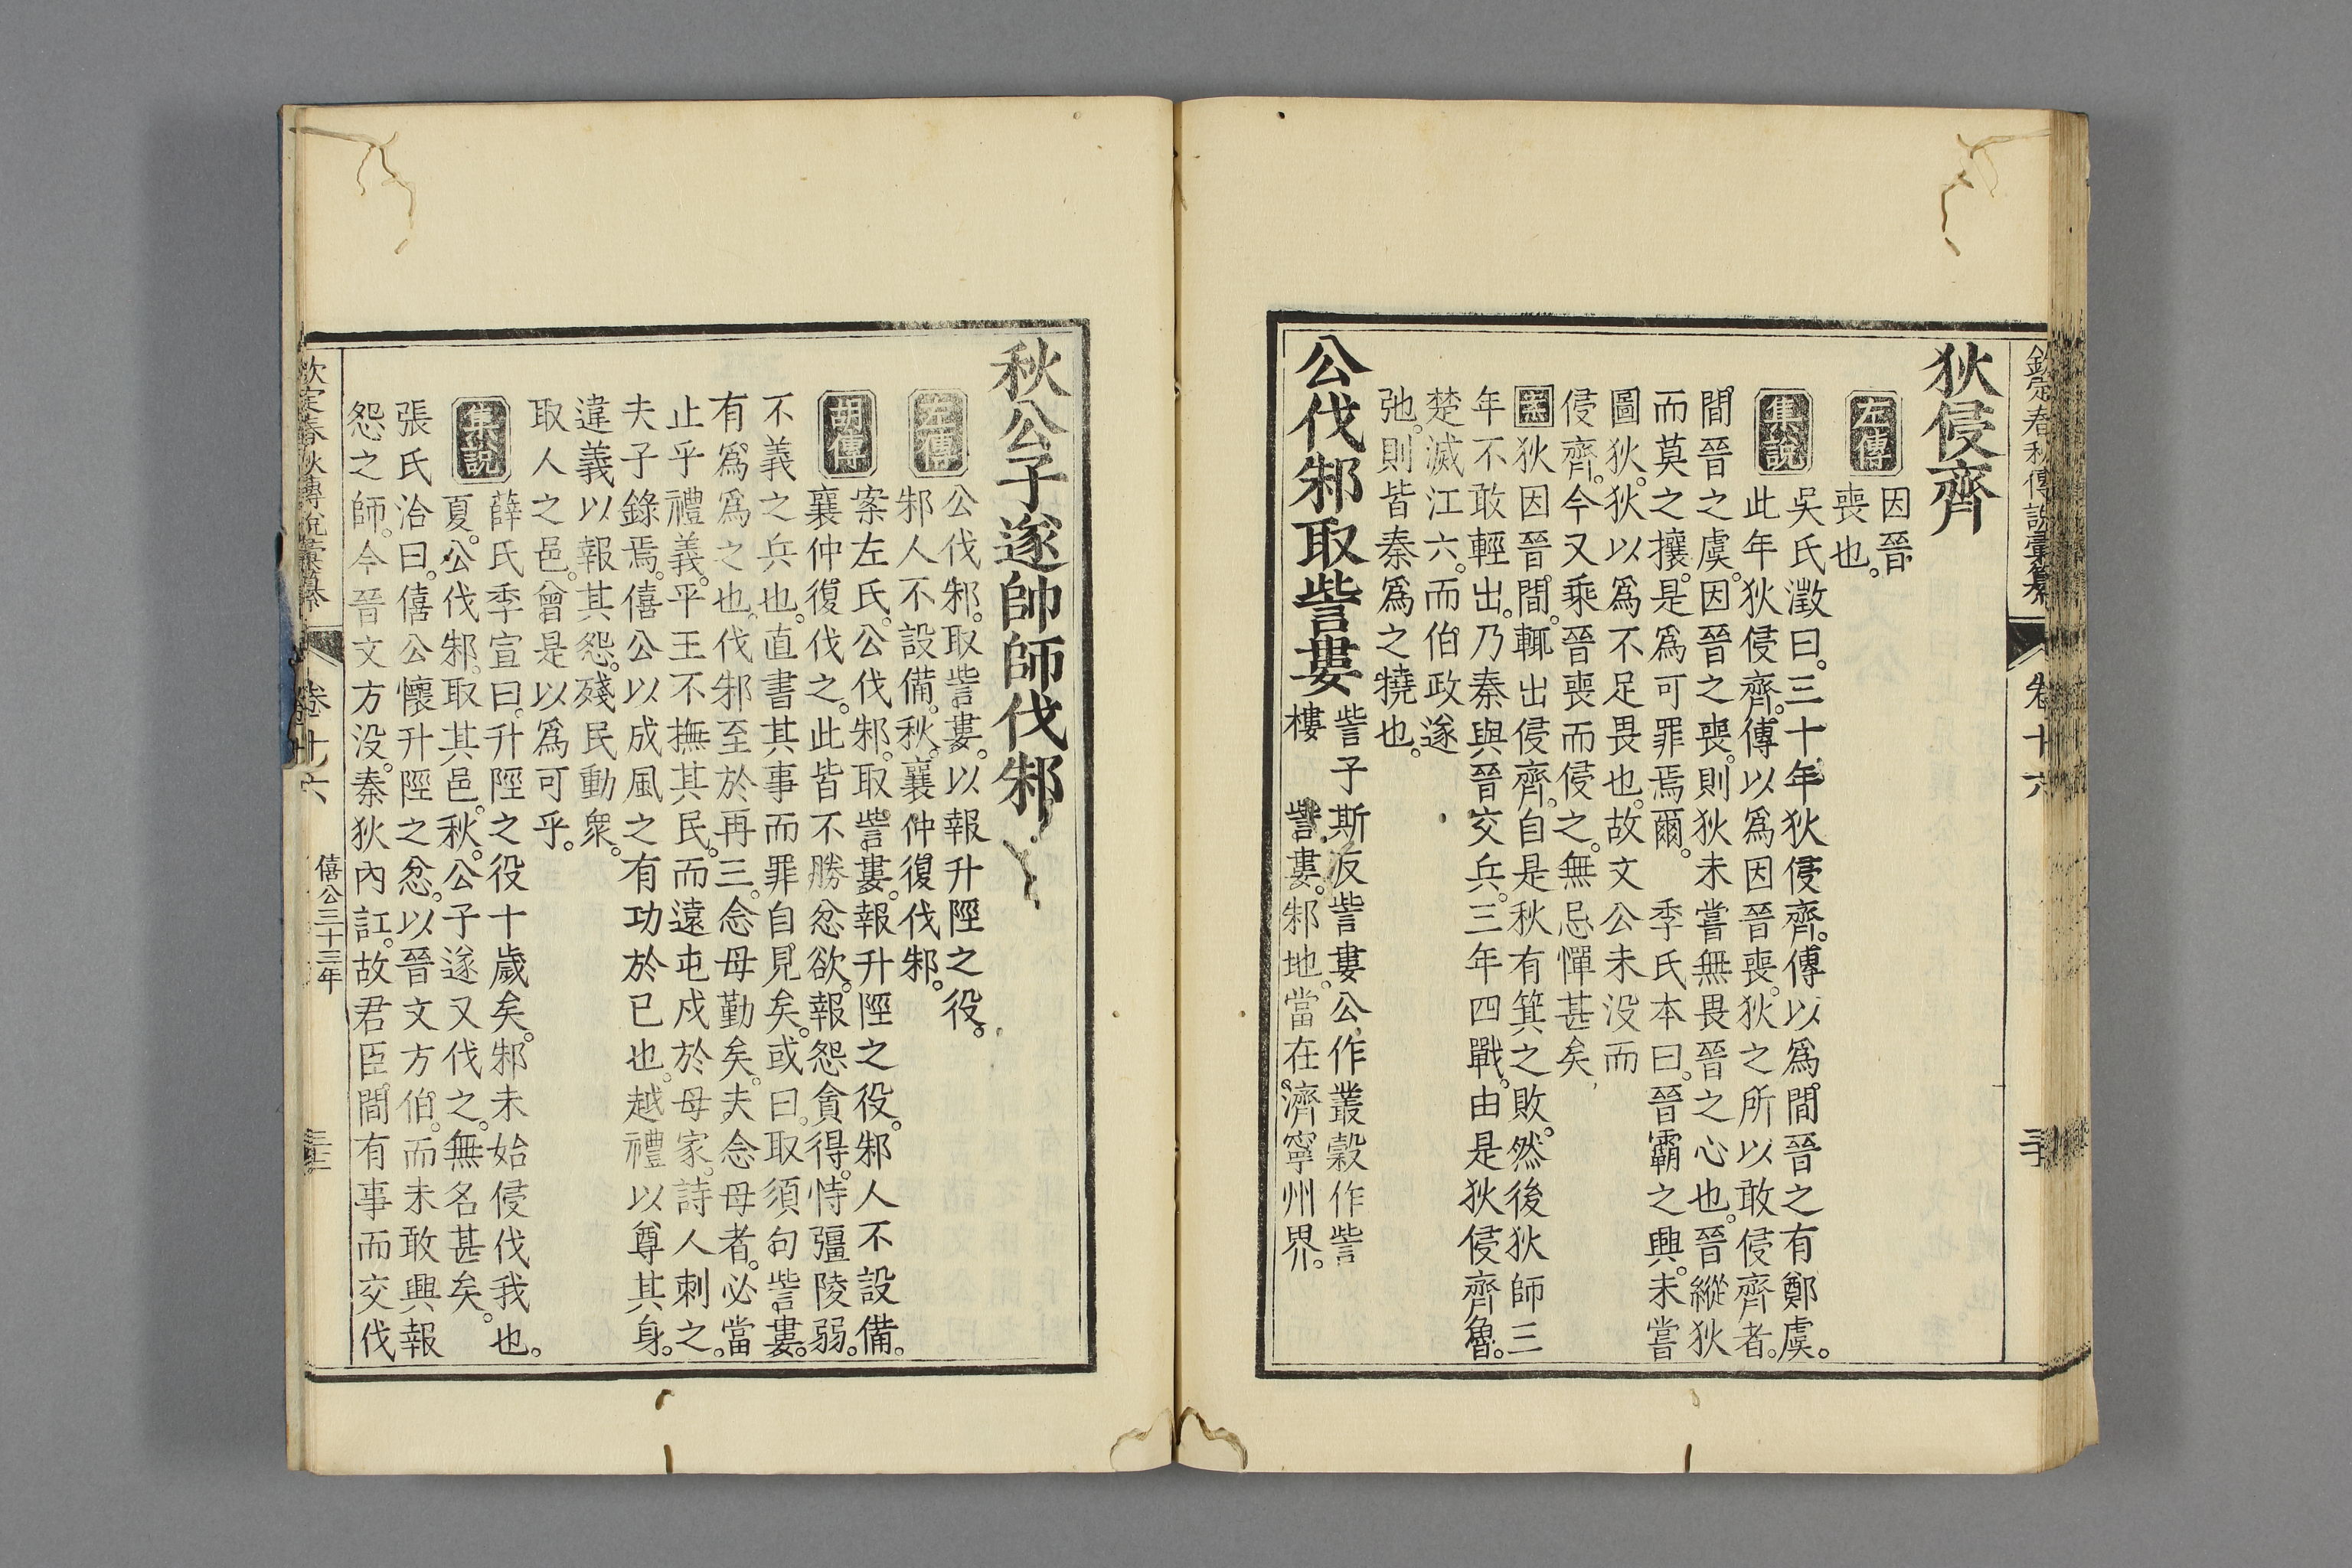 欽定春秋傳說彙纂 卷十六
狄侵齊
左傳
因晉
喪也。
集說
吳氏澂曰。三十年狄侵齊。傳以爲間晉之有鄭虞。
此年狄侵齊。傳以爲因晉喪。狄之所以敢侵齊者。
間晉之虞。因晉之喪。則狄未嘗無畏晉之心也。晉縱狄
而莫之攘。是爲可罪焉爾。 季氏本曰。晉霸之興。未嘗
圖狄。狄以爲不足畏也。故文公未没而
侵齊。今又乘晉喪而侵之。無忌憚甚矣。
案狄因晉間。輒出侵齊。自是秋有箕之敗。然後狄師三
年不敢輕出。乃秦與晉交兵。三年四戰。由是狄侵齊魯。
楚滅江六。而伯政遂
弛。則皆秦爲之撓也。
公伐邾取訾婁
訾子斯反訾婁公作叢穀作訾
樓 訾婁。邾地。當在濟寧州界。
秋公子遂帥師伐邾
左傳
公伐邾。取訾婁。以報升陘之役。
邾人不設備。秋。襄仲復伐邾。
胡傳
案左氏。公伐邾。取訾婁。報升陘之役。邾人不設備。
襄仲復伐之。此皆不勝忿欲。報怨貪得。恃彊陵弱。
不義之兵也。直書其事而罪自見矣。或曰。取須句訾婁。
有爲爲之也。伐邾至於再三。念母勤矣。夫念母者。必當
止乎禮義。平王不撫其民。而遠屯戍於母家。詩人刺之。
夫子錄焉。僖公以成風之有功於已也。越禮以尊其身。
違義以報其怨。殘民動衆。
取人之邑。曾是以爲可乎。
集說
薛氏季宣曰。升陘之役十歲矣。邾未始侵伐我也。
夏。公伐邾。取其邑。秋。公子遂又伐之。無名甚矣。
張氏洽曰。僖公懷升陘之忿。以晉文方伯。而未敢興報
怨之師。今晉文方没。秦狄內訌。故君臣間有事而交伐
欽定春秋傳說彙纂 卷十六 僖公三十三年